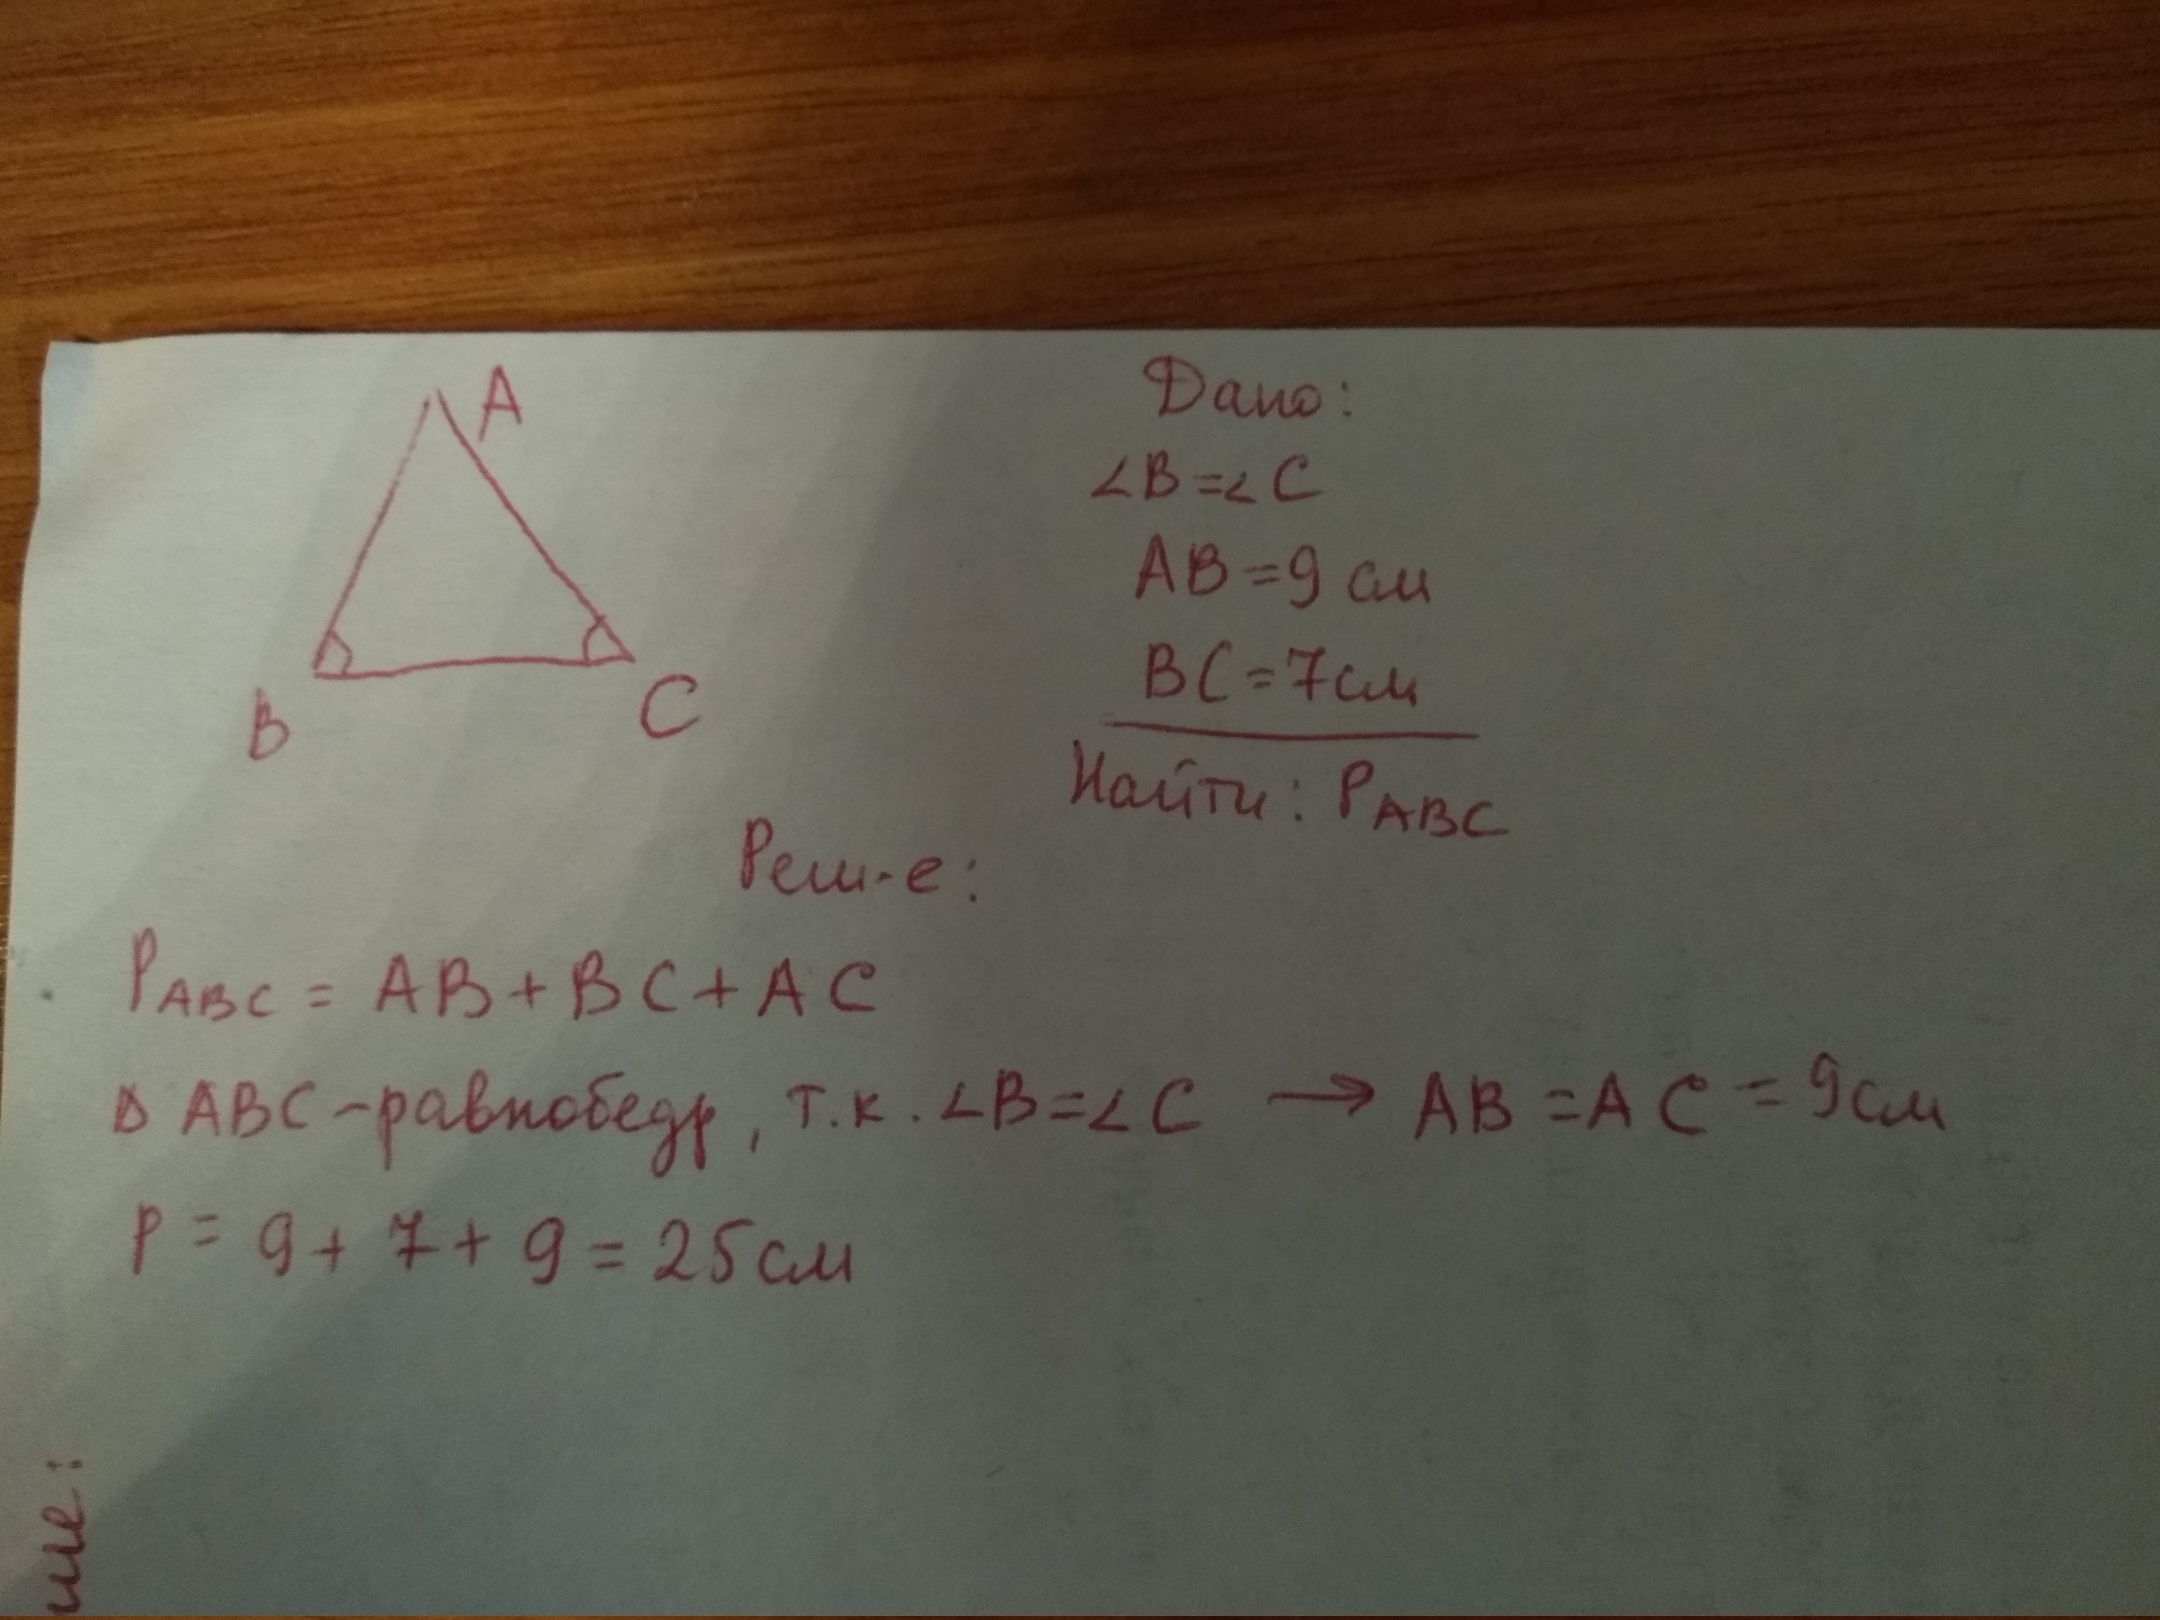 A
B
C
Дано:
∠B=∠C
AB=9 см
BC=7см
Найти: PABC
Реш-е:
PABC = AB+BC+AC
Δ ABC-равнобедр, т.к. ∠B=∠C → AB=AC=9см
P = 9+7+9=25см